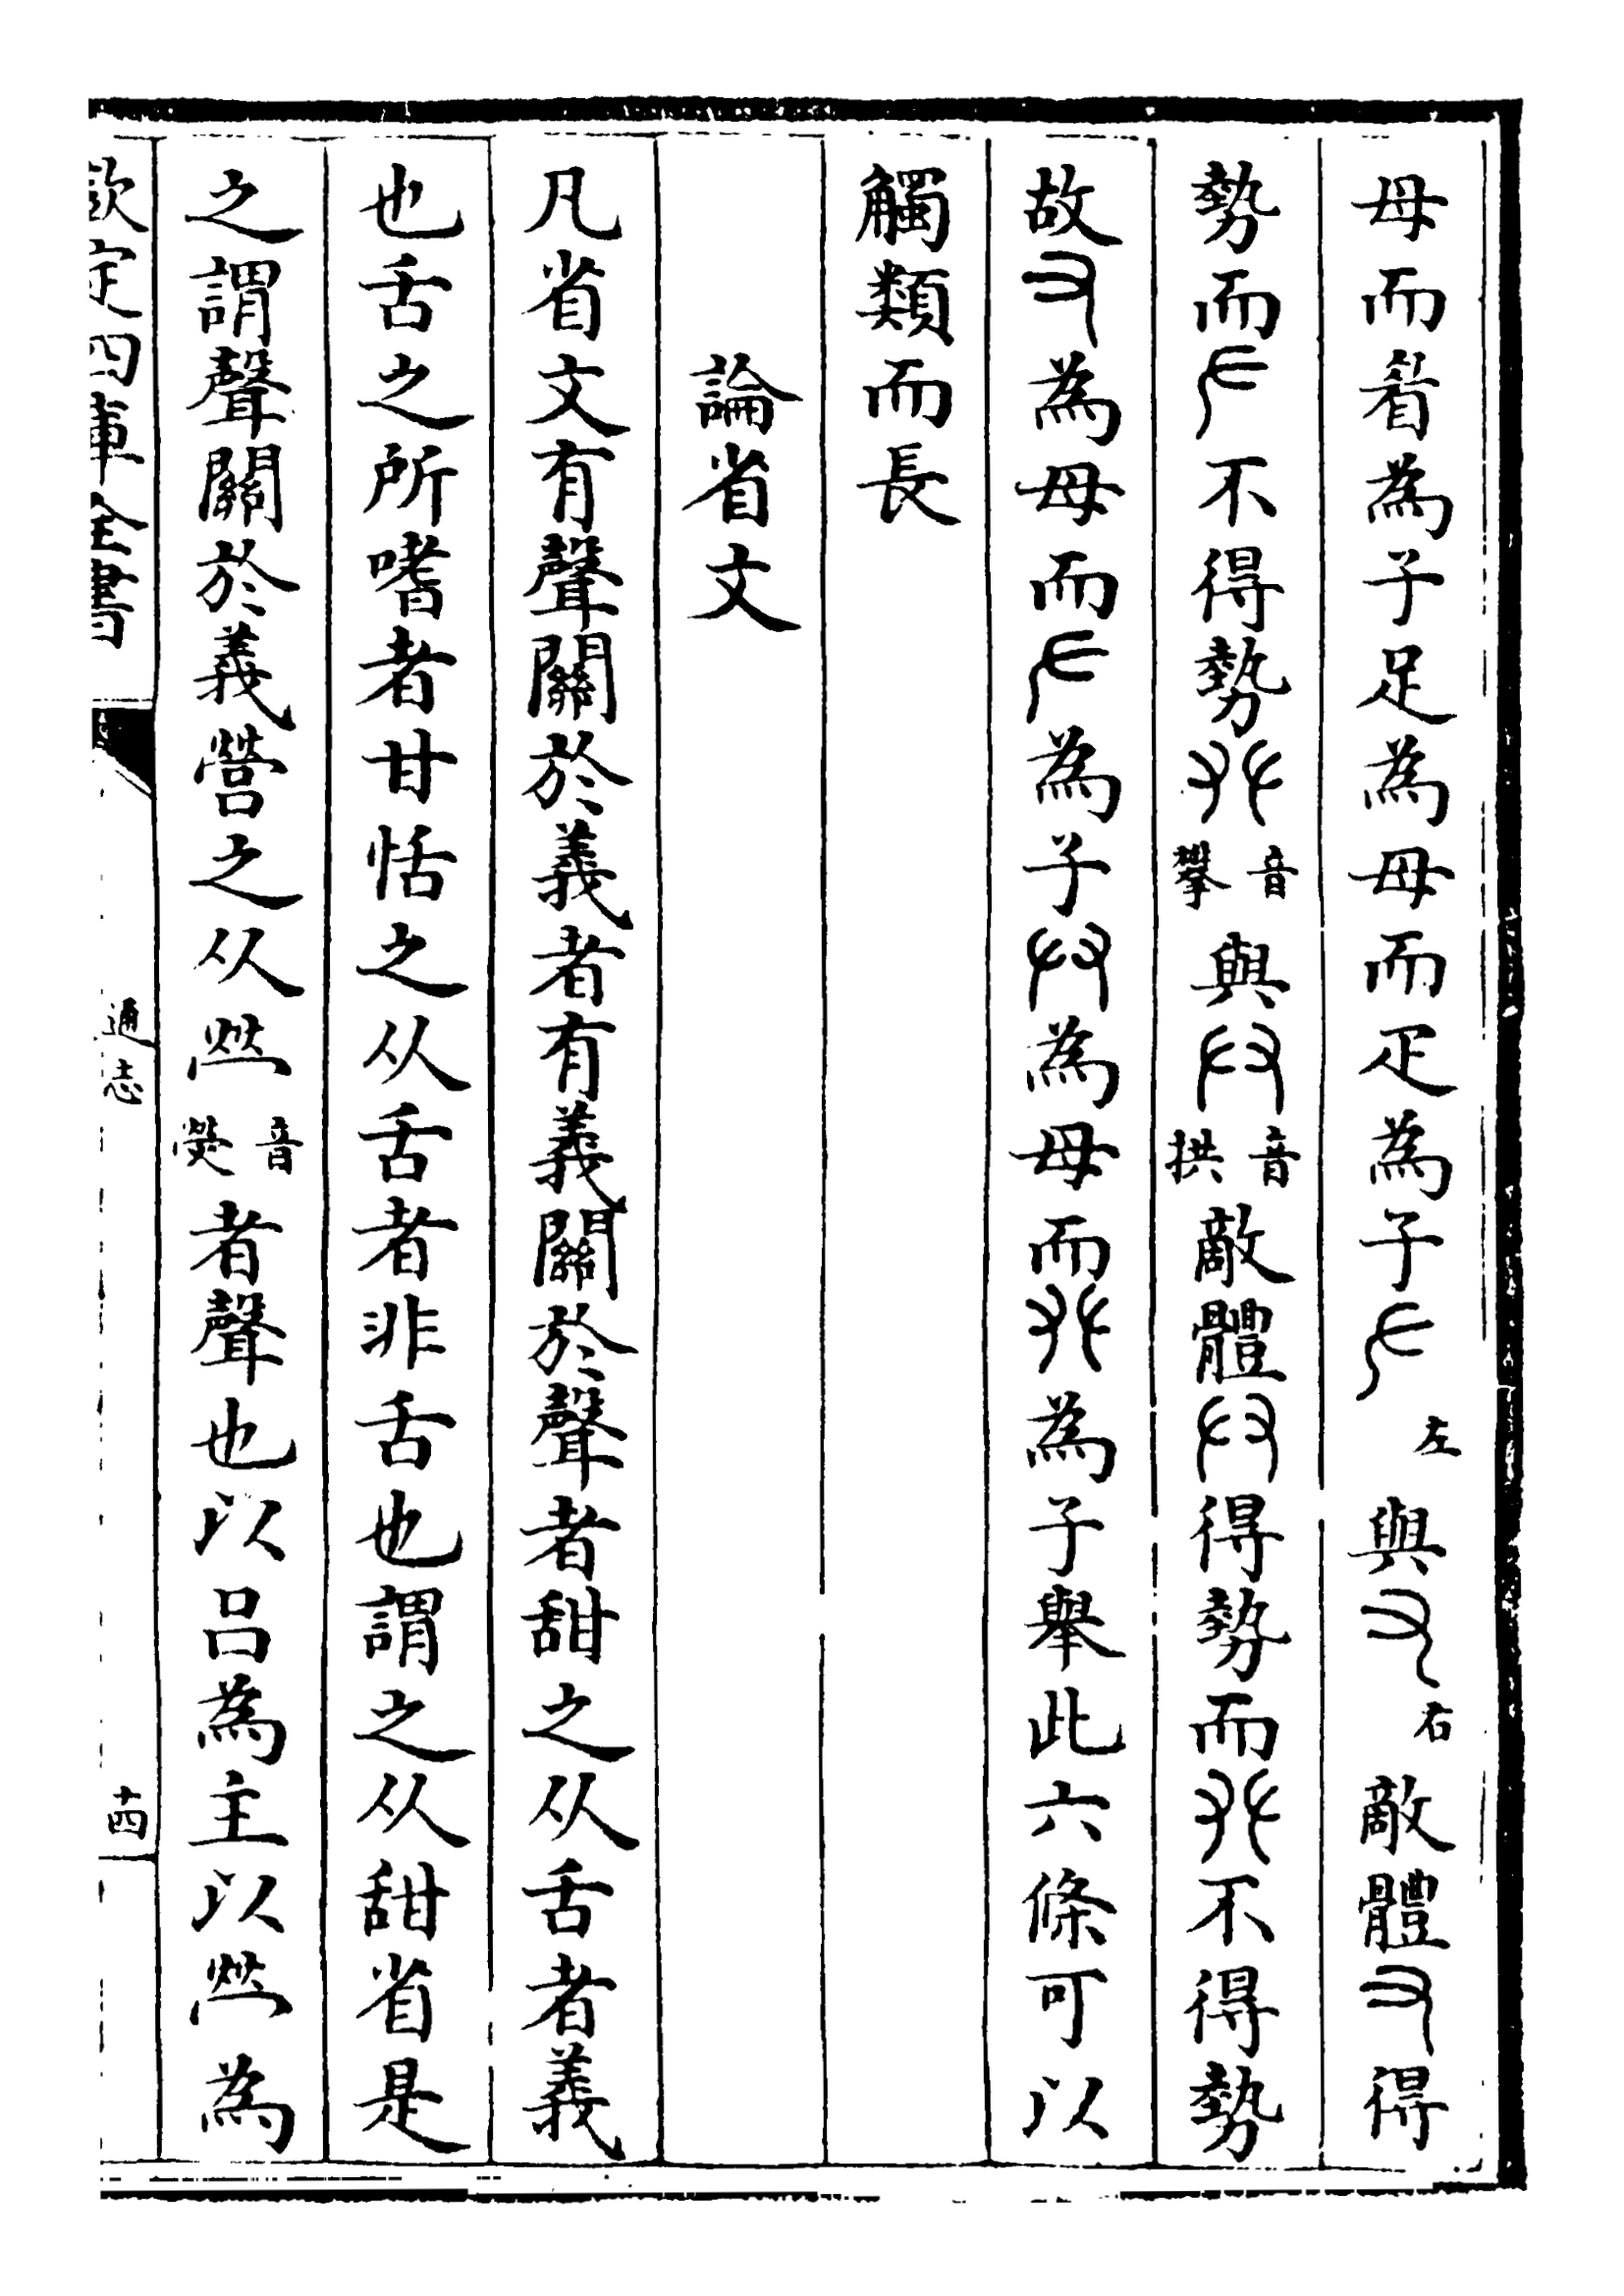 母而為子足為母而疋為子𠂇左與又右敵體又得
勢而𠂇不得勢𠬜音攀與𠬞音拱敵體𠬞得勢而𠬜不得勢
故又為母而𠂇為子𠬞為母而𠬜為子舉此六條可以
觸類而長
論省文
凡省文有聲關於義者有義關於聲者甜之从舌者義
也舌之所嗜者甘恬之从舌者非舌也謂之从甜省是
之謂聲關於義營之从𤇾音熒者聲也以呂為主以𤇾為
欽定四庫全書
通志
十四